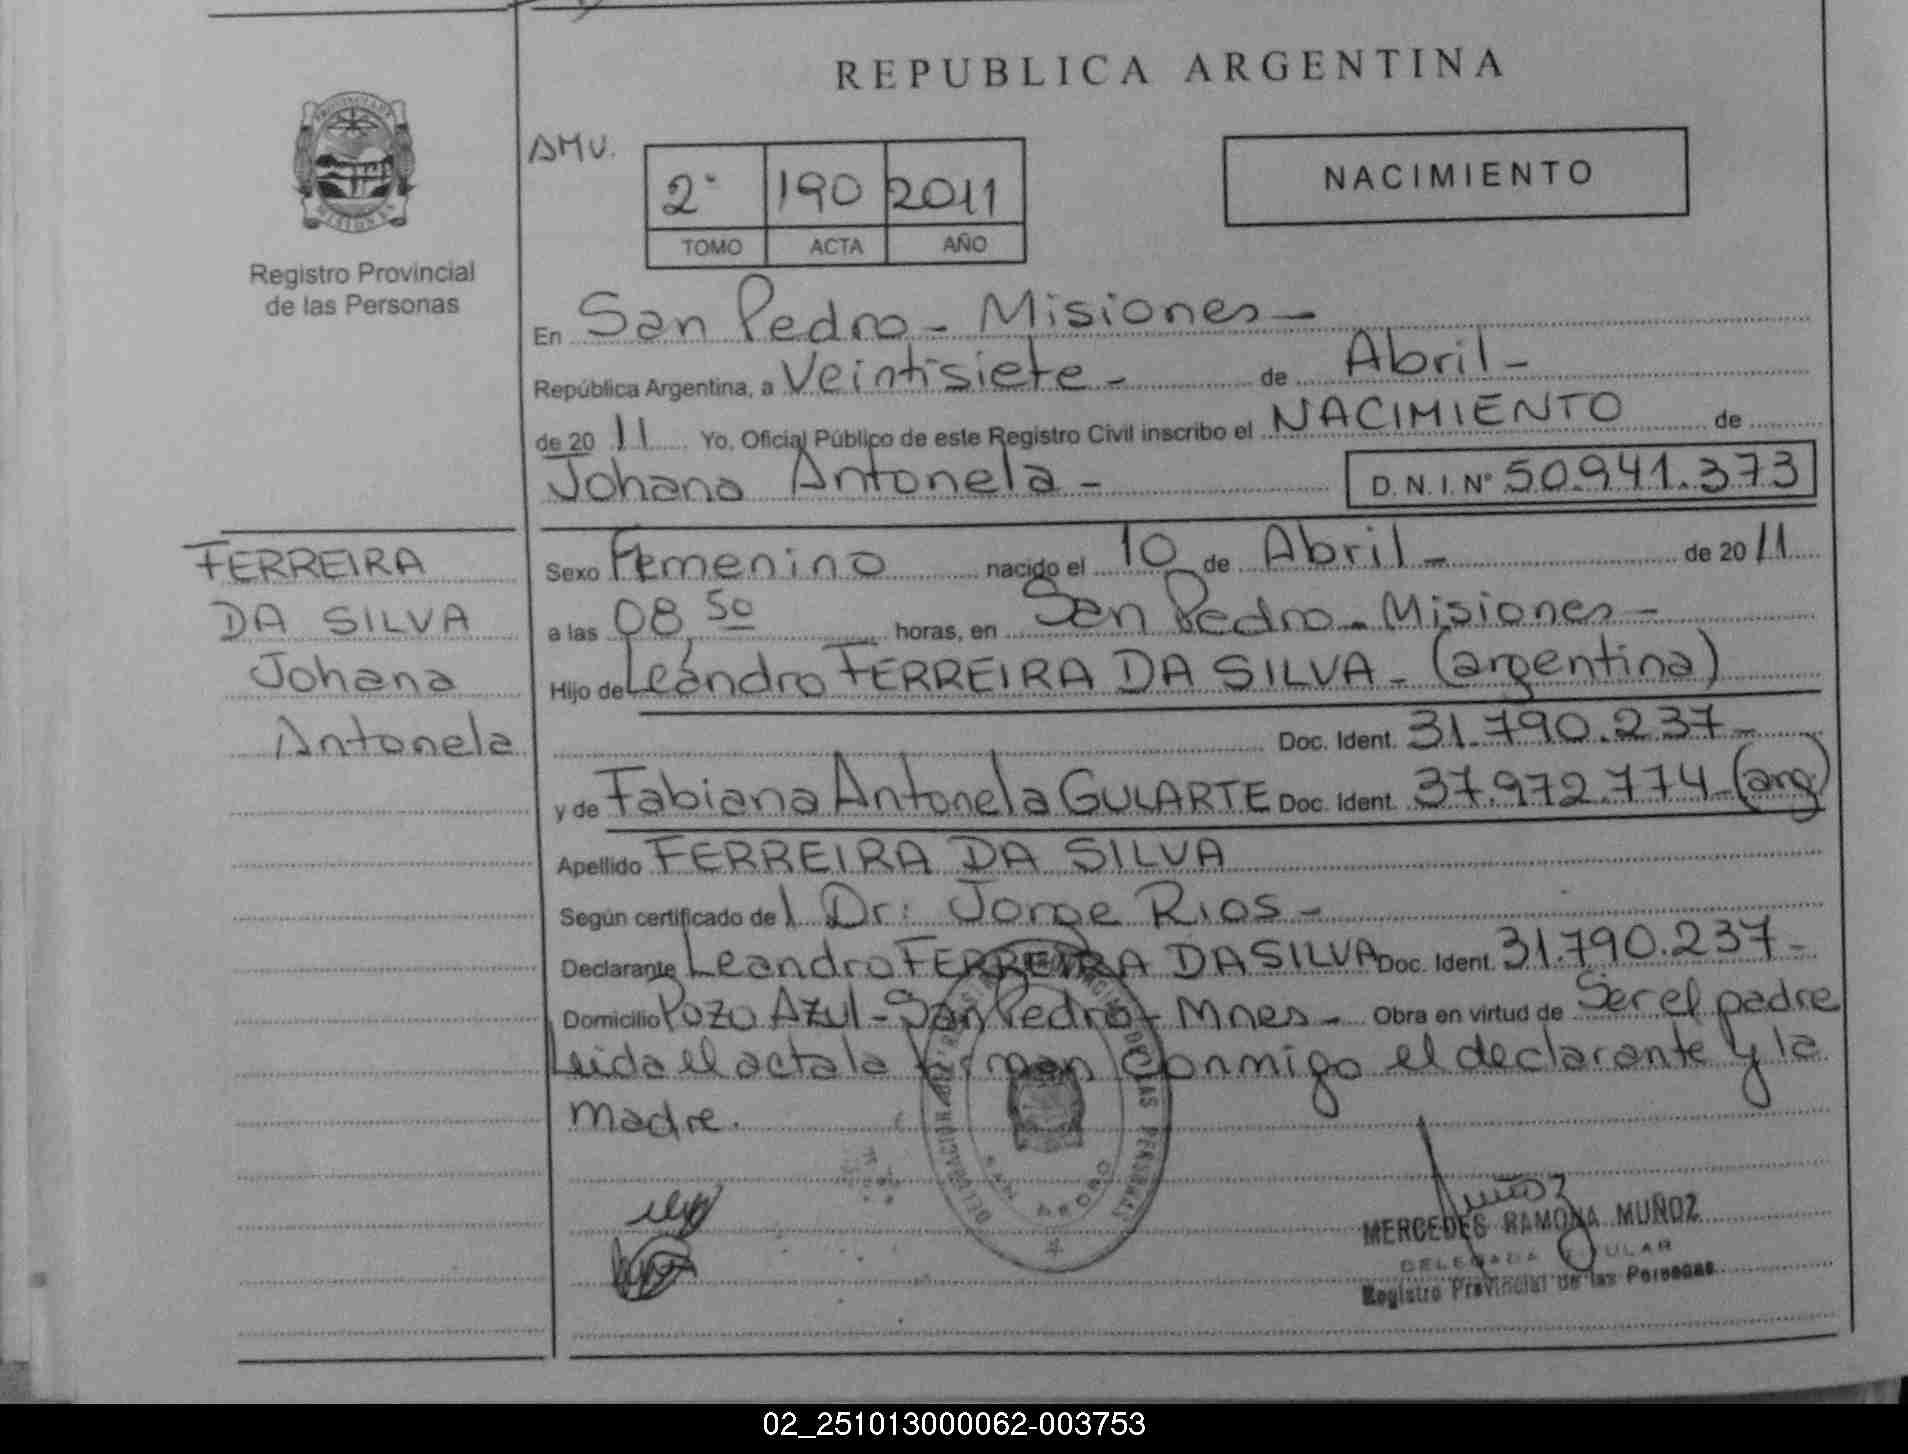 REPUBLICA ARGENTINA
PROVINCIA DE
MISIONES
Registro Provincial
de las Personas
AMU.
2° 190 2011
TOMO ACTA AÑO
NACIMIENTO
En San Pedro - Misiones -
República Argentina, a Veintisiete - de Abril -
de 20 11 Yo, Oficial Público de este Registro Civil inscribo el NACIMIENTO de
Johana Antonela - D.N.I. N° 50.941.373
FERREIRA
DA SILVA
Johana
Antonela
Sexo Femenino nacido el 10 de Abril - de 20 11
a las 08,50 horas, en San Pedro - Misiones -
Hijo de Leandro FERREIRA DA SILVA - (argentina)
Doc. Ident. 31.790.237 -
y de Fabiana Antonela GULARTE Doc. Ident. 37.972.774 - (arg)
Apellido FERREIRA DA SILVA
Según certificado del Dr: Jorge Rios -
Declarante Leandro FERREIRA DA SILVA Doc. Ident. 31.790.237 -
Domicilio Pozo Azul - San Pedro - Mnes - Obra en virtud de Ser el padre
Leida el acta la firman conmigo el declarante y la
madre.
MERCEDES RAMONA MUÑOZ
DELEGADA TITULAR
Registro Provincial de las Personas
02_251013000062-003753